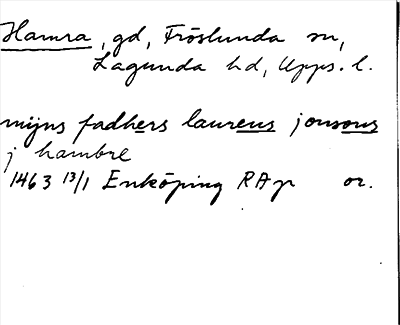 Hamra, gd, Fröslunda sn,
Lagunda hd, Upps. l.
mijns fadhers laurens jonsons
j hambre
1463 13/1 Enköping RAp or.